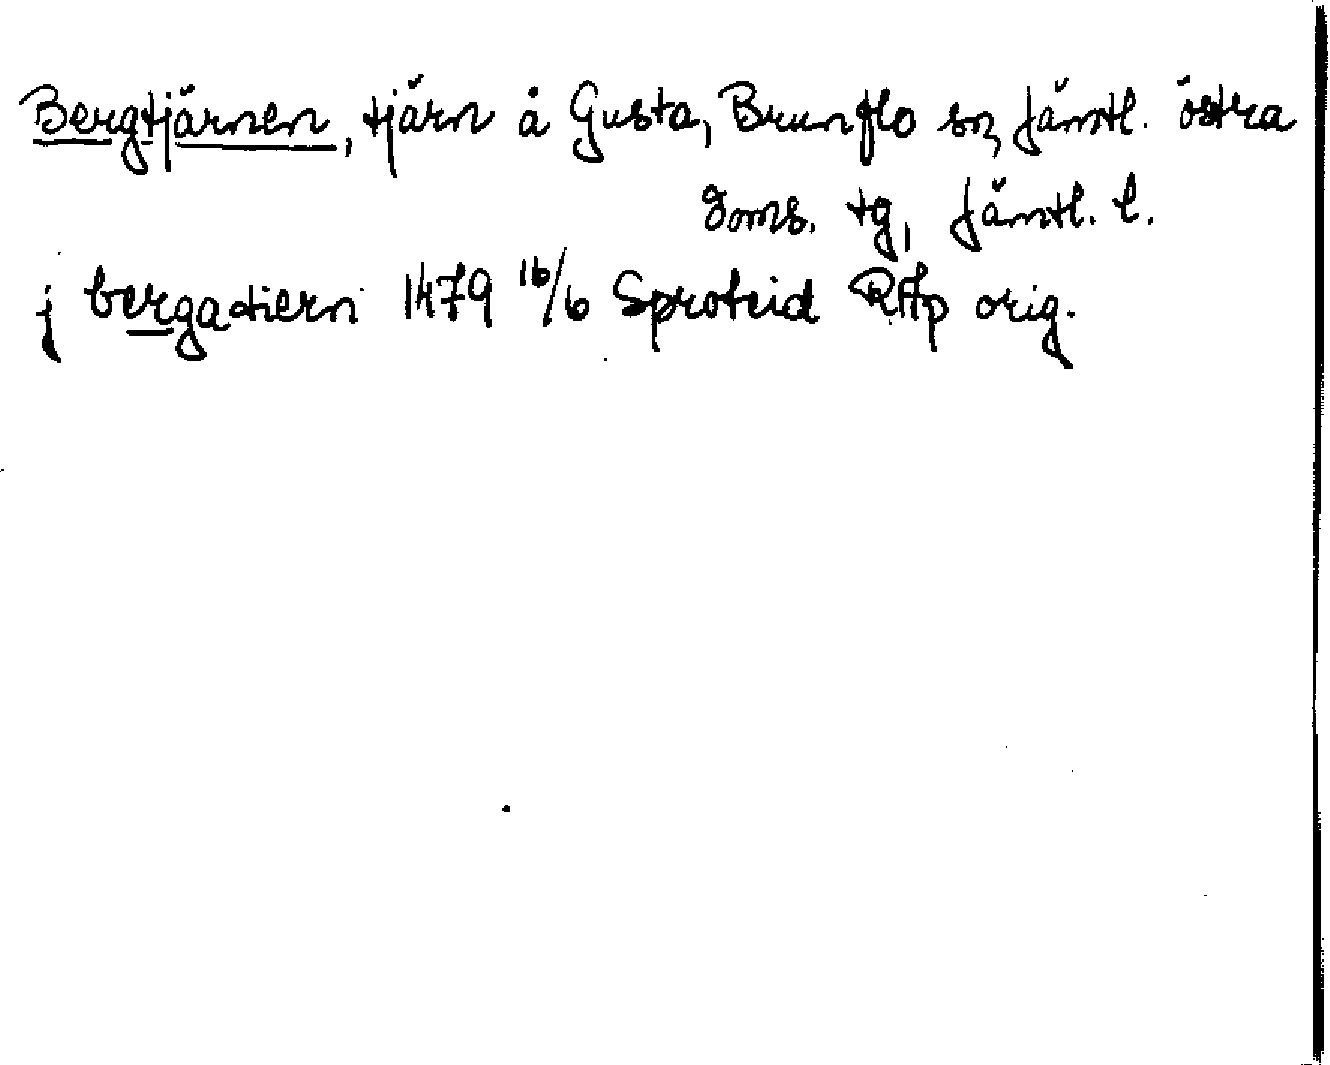 Bergtjärnen, tjärn å Gusta, Brunflo sn, Jämtl. östra
doms. tg, Jämtl. l.
j bergatiern 1479 16/6 Sproteid RAp orig.